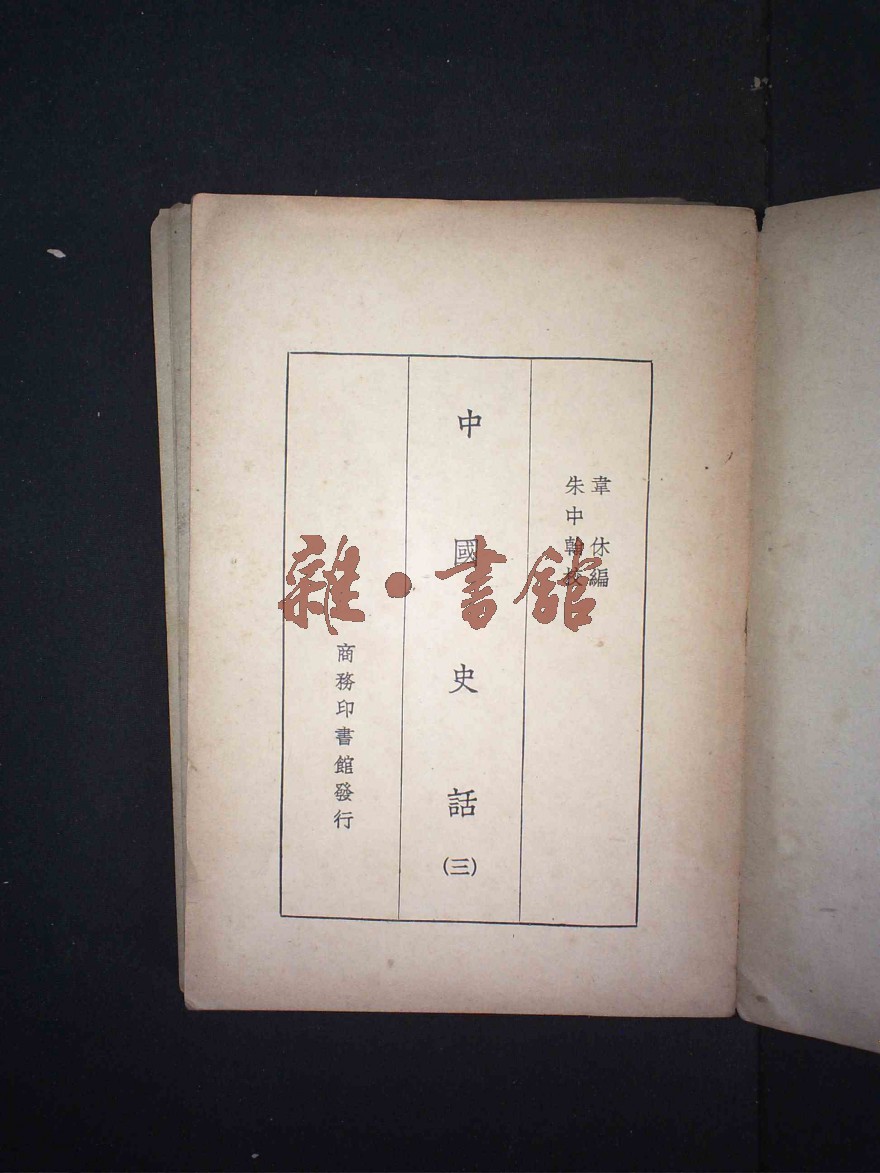 韋休編
朱中翰校
中國史話(三)
商務印書館發行
雜·書館